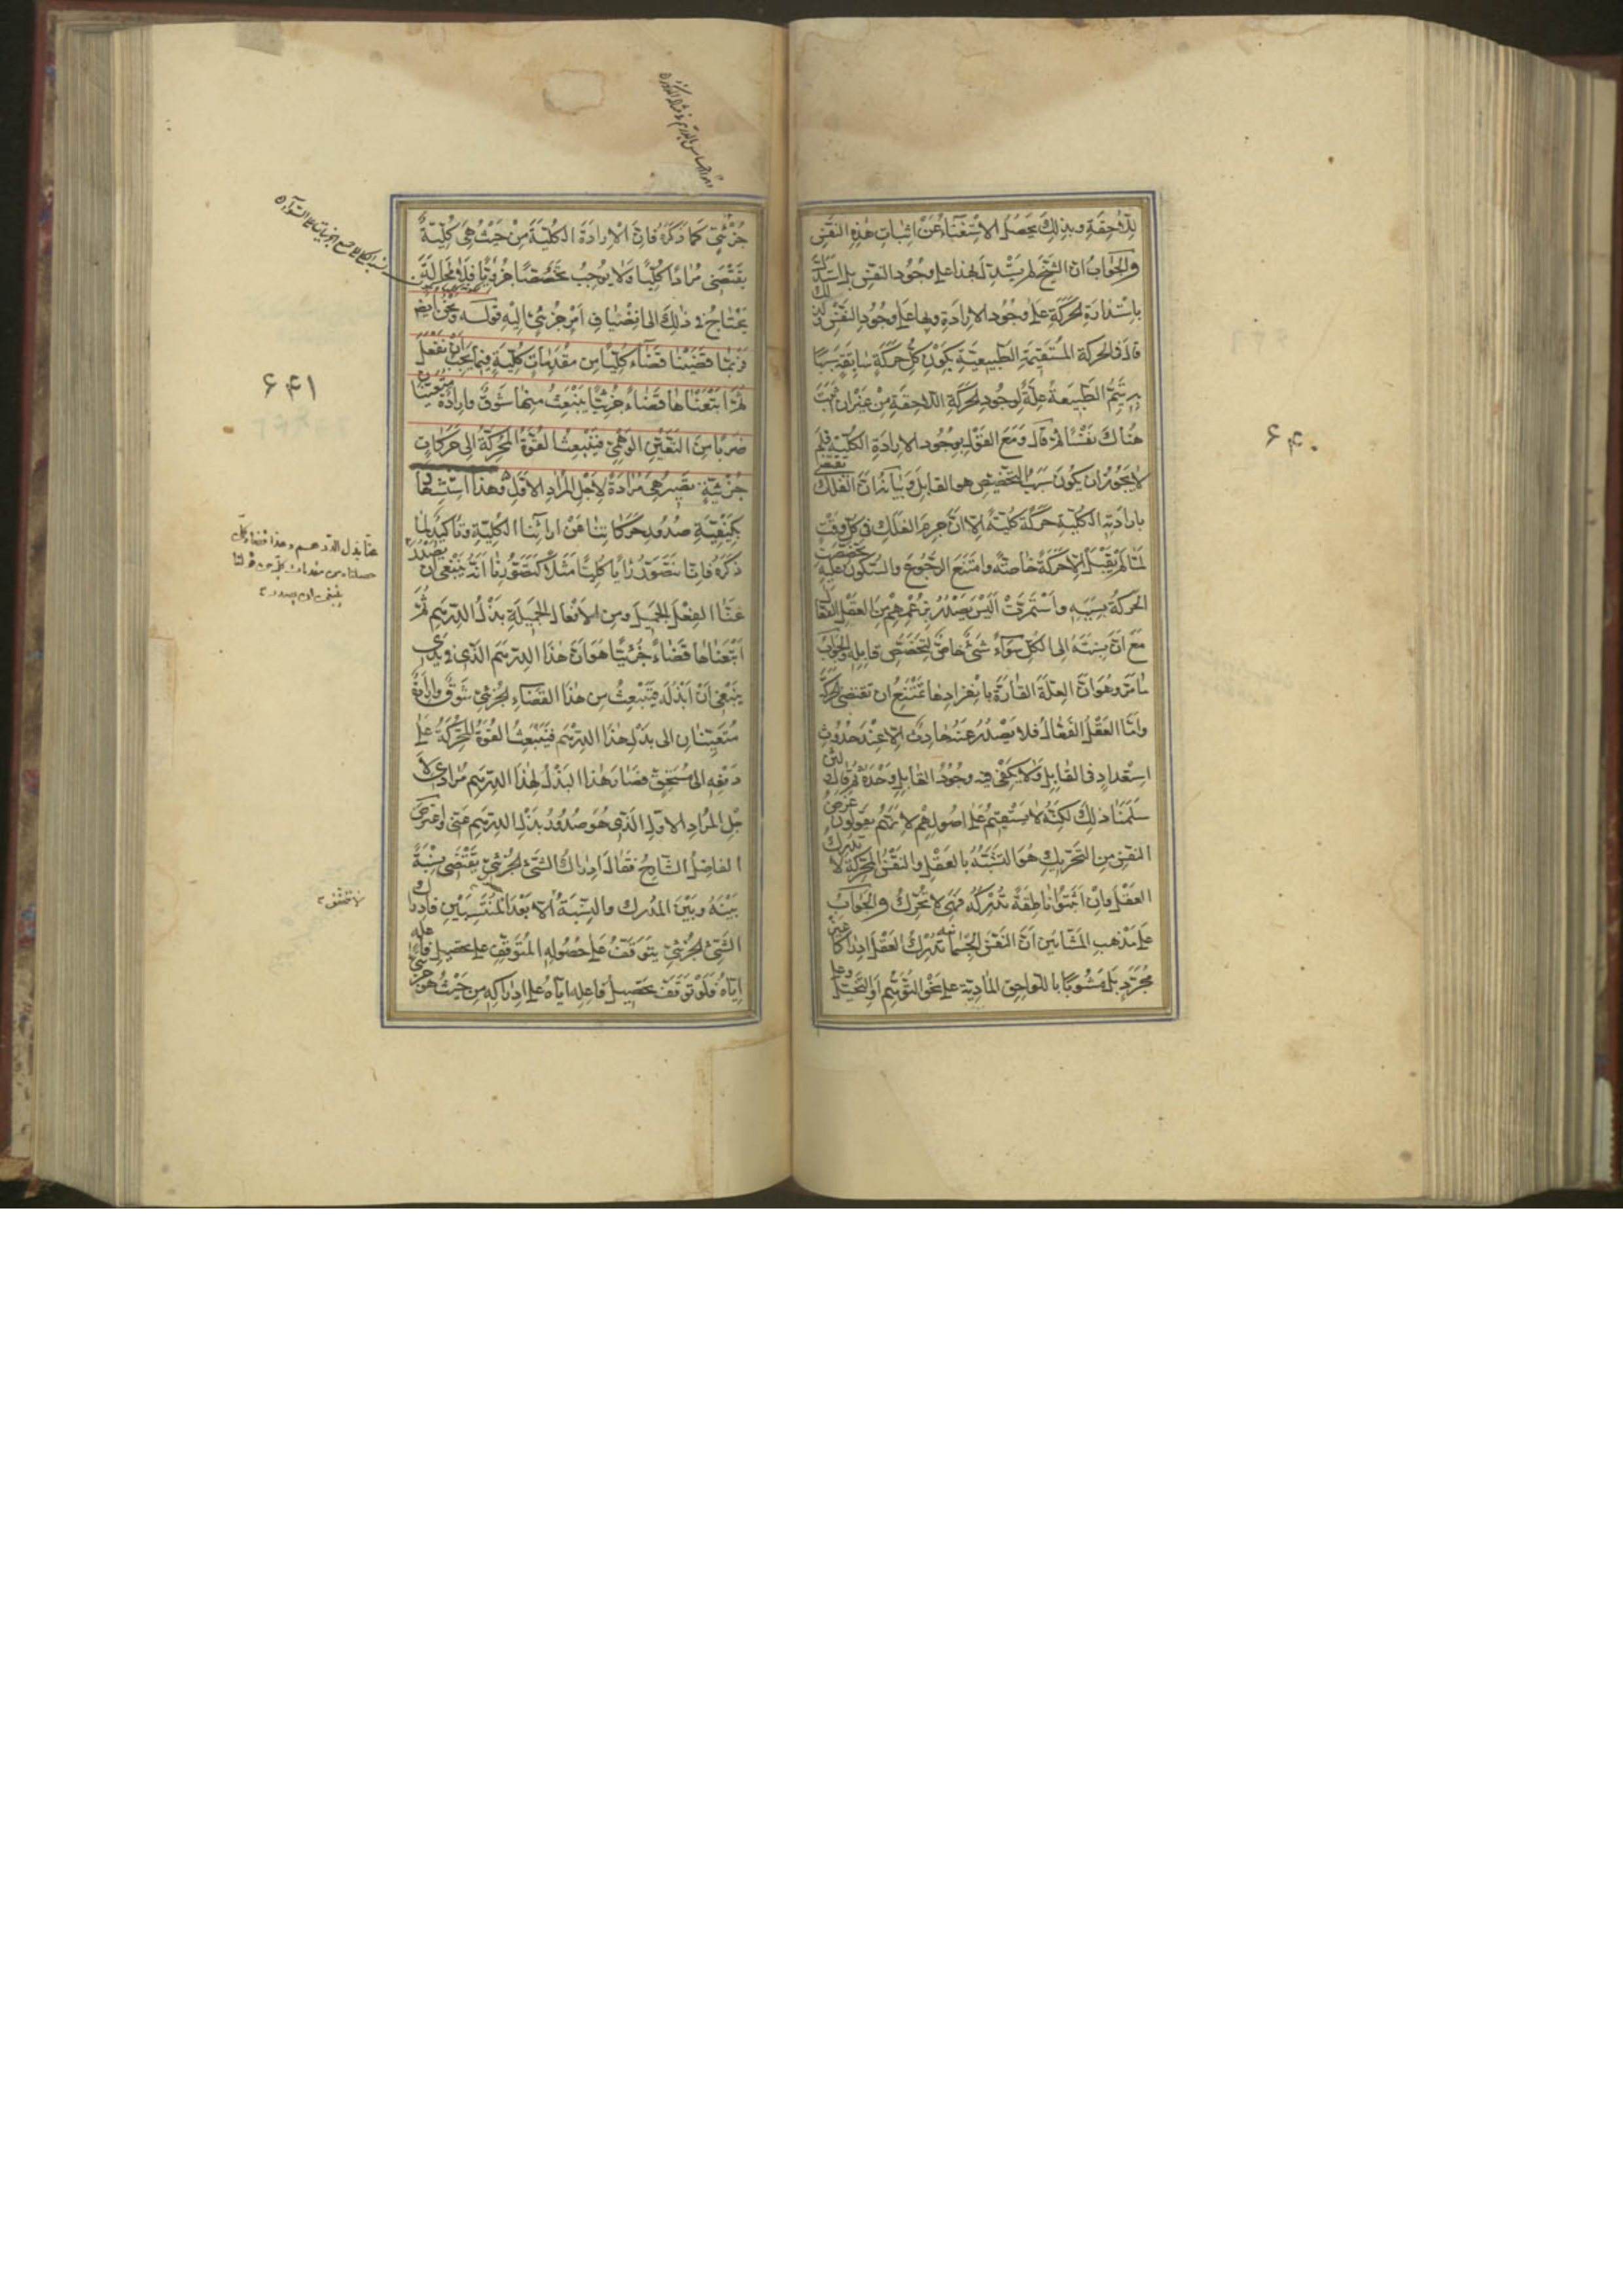 ۶۴۰
للاحقة وبذلك يحصل الاستغناء عن اثبات هذه النفس
والجواب ان الشيخ لم يستدل بهذا على وجود النفس بل استدل
باستدارة الحركة على وجود الارادة وبها على وجود النفس
قال فى الحركة المستقيمة الطبيعية بكون كل حركة سابقة سببا
يتم الطبيعة علة لوجود الحركة اللاحقة من غير ان
هناك نفسا ثم قال ومع القول بوجود الارادة الكلية فلم
لا يجوز ان يكون سبب التخصيص هو القابل وبيانه ان الفلك
بارادته الكلية حركة كلية الا ان جرم الفلك فى كل وقت
لما لم يقبل الا حركة خاصة وامتنع الرجوع والسكون عليه
الحركة بسببه واستمرت اليس يصدر بزعمهم من العقل الفعال
مع ان نسبته الى الكل سواء شئ خاص لتخصص قابله والجواب
مامر وهو ان العلة القارة بانفرادها يمتنع ان تقتضى الحركة
واما العقل الفعال فلا يصدر عنه حادث الا عند حدوث
استعداد فى القابل ولا يكفى فيه وجود القابل وحده ثم قال
سلمنا ذلك لكنه لا يستقيم على اصولهم لانهم يقولون غرض
النفس من التحريك هو التشبه بالعقل والنفس المحركة لا تدرك
العقل فان اثبتوا ناطقة تدركه فهى لا تحرك والجواب
على مذهب المشائين ان النفس الجسمانية تدرك العقل ادراكا غير
مجرد بل مشوبا باللواحق المادية على نحو التوهم او التخيل وعلى
۶۴۱
جزئى كما ذكره فان الارادة الكلية من حيث هى كلية
يقتضى مرادا كليا ولا يوجب تخصصا جزويا
يحتاج فى ذلك الى انضياف امر جزئى اليه قوله ونحن ايضا
فربما قضينا قضاء كليا من مقدمات كلية فيما يجب ان نفعل
ثم اتبعناها قضاء جزئيا ينبعث منها شوق وارادة متعينتان
ضربا من التعين الوهمى فينبعث القوة المحركة الى حركات
جزئية تصير هى مرادة لاجل المراد الاول وهذا استشهاد
بكيفية صدور حركاتنا عن ارائنا الكلية وتاكيد لما
ذكره فانا نتصور رايا كليا مثلا كتصورنا انه ينبغى ان يصدر
عنا الفعل الجميل ومن الافعال الجميلة بذل الدرهم ثم
اتبعناها قضاء جزئيا هو ان هذا الدرهم الذى فى يدى
ينبغى ان ابذله فينبعث من هذا القضاء الجزئى شوق وارادة
متعينتان الى بذل هذا الدرهم فينبعث القوة المحركة على
دفعه الى مستحق فصار هذا البذل لهذا الدرهم مرادى لا
جل المراد الاول الذى هو صدور بذل الدرهم عنى واعترض
الفاضل الشارح فقال ادراك الشئ الجزئى يقتضى نسبة
بينه وبين المدرك والنسبة الا بعد المنتسبين فادراك
الشئ الجزئى يتوقف على حصوله المتوقف على تحصيل فاعله
اياه فلو توقف تحصيل فاعله اياه على ادراكه من حيث هو جزئى
عنا بذل الدرهم وهذا قضاء كلى
حصلناه من مقدمات كلية من قولنا
ينبغى ان يصدر
لا تتحقق